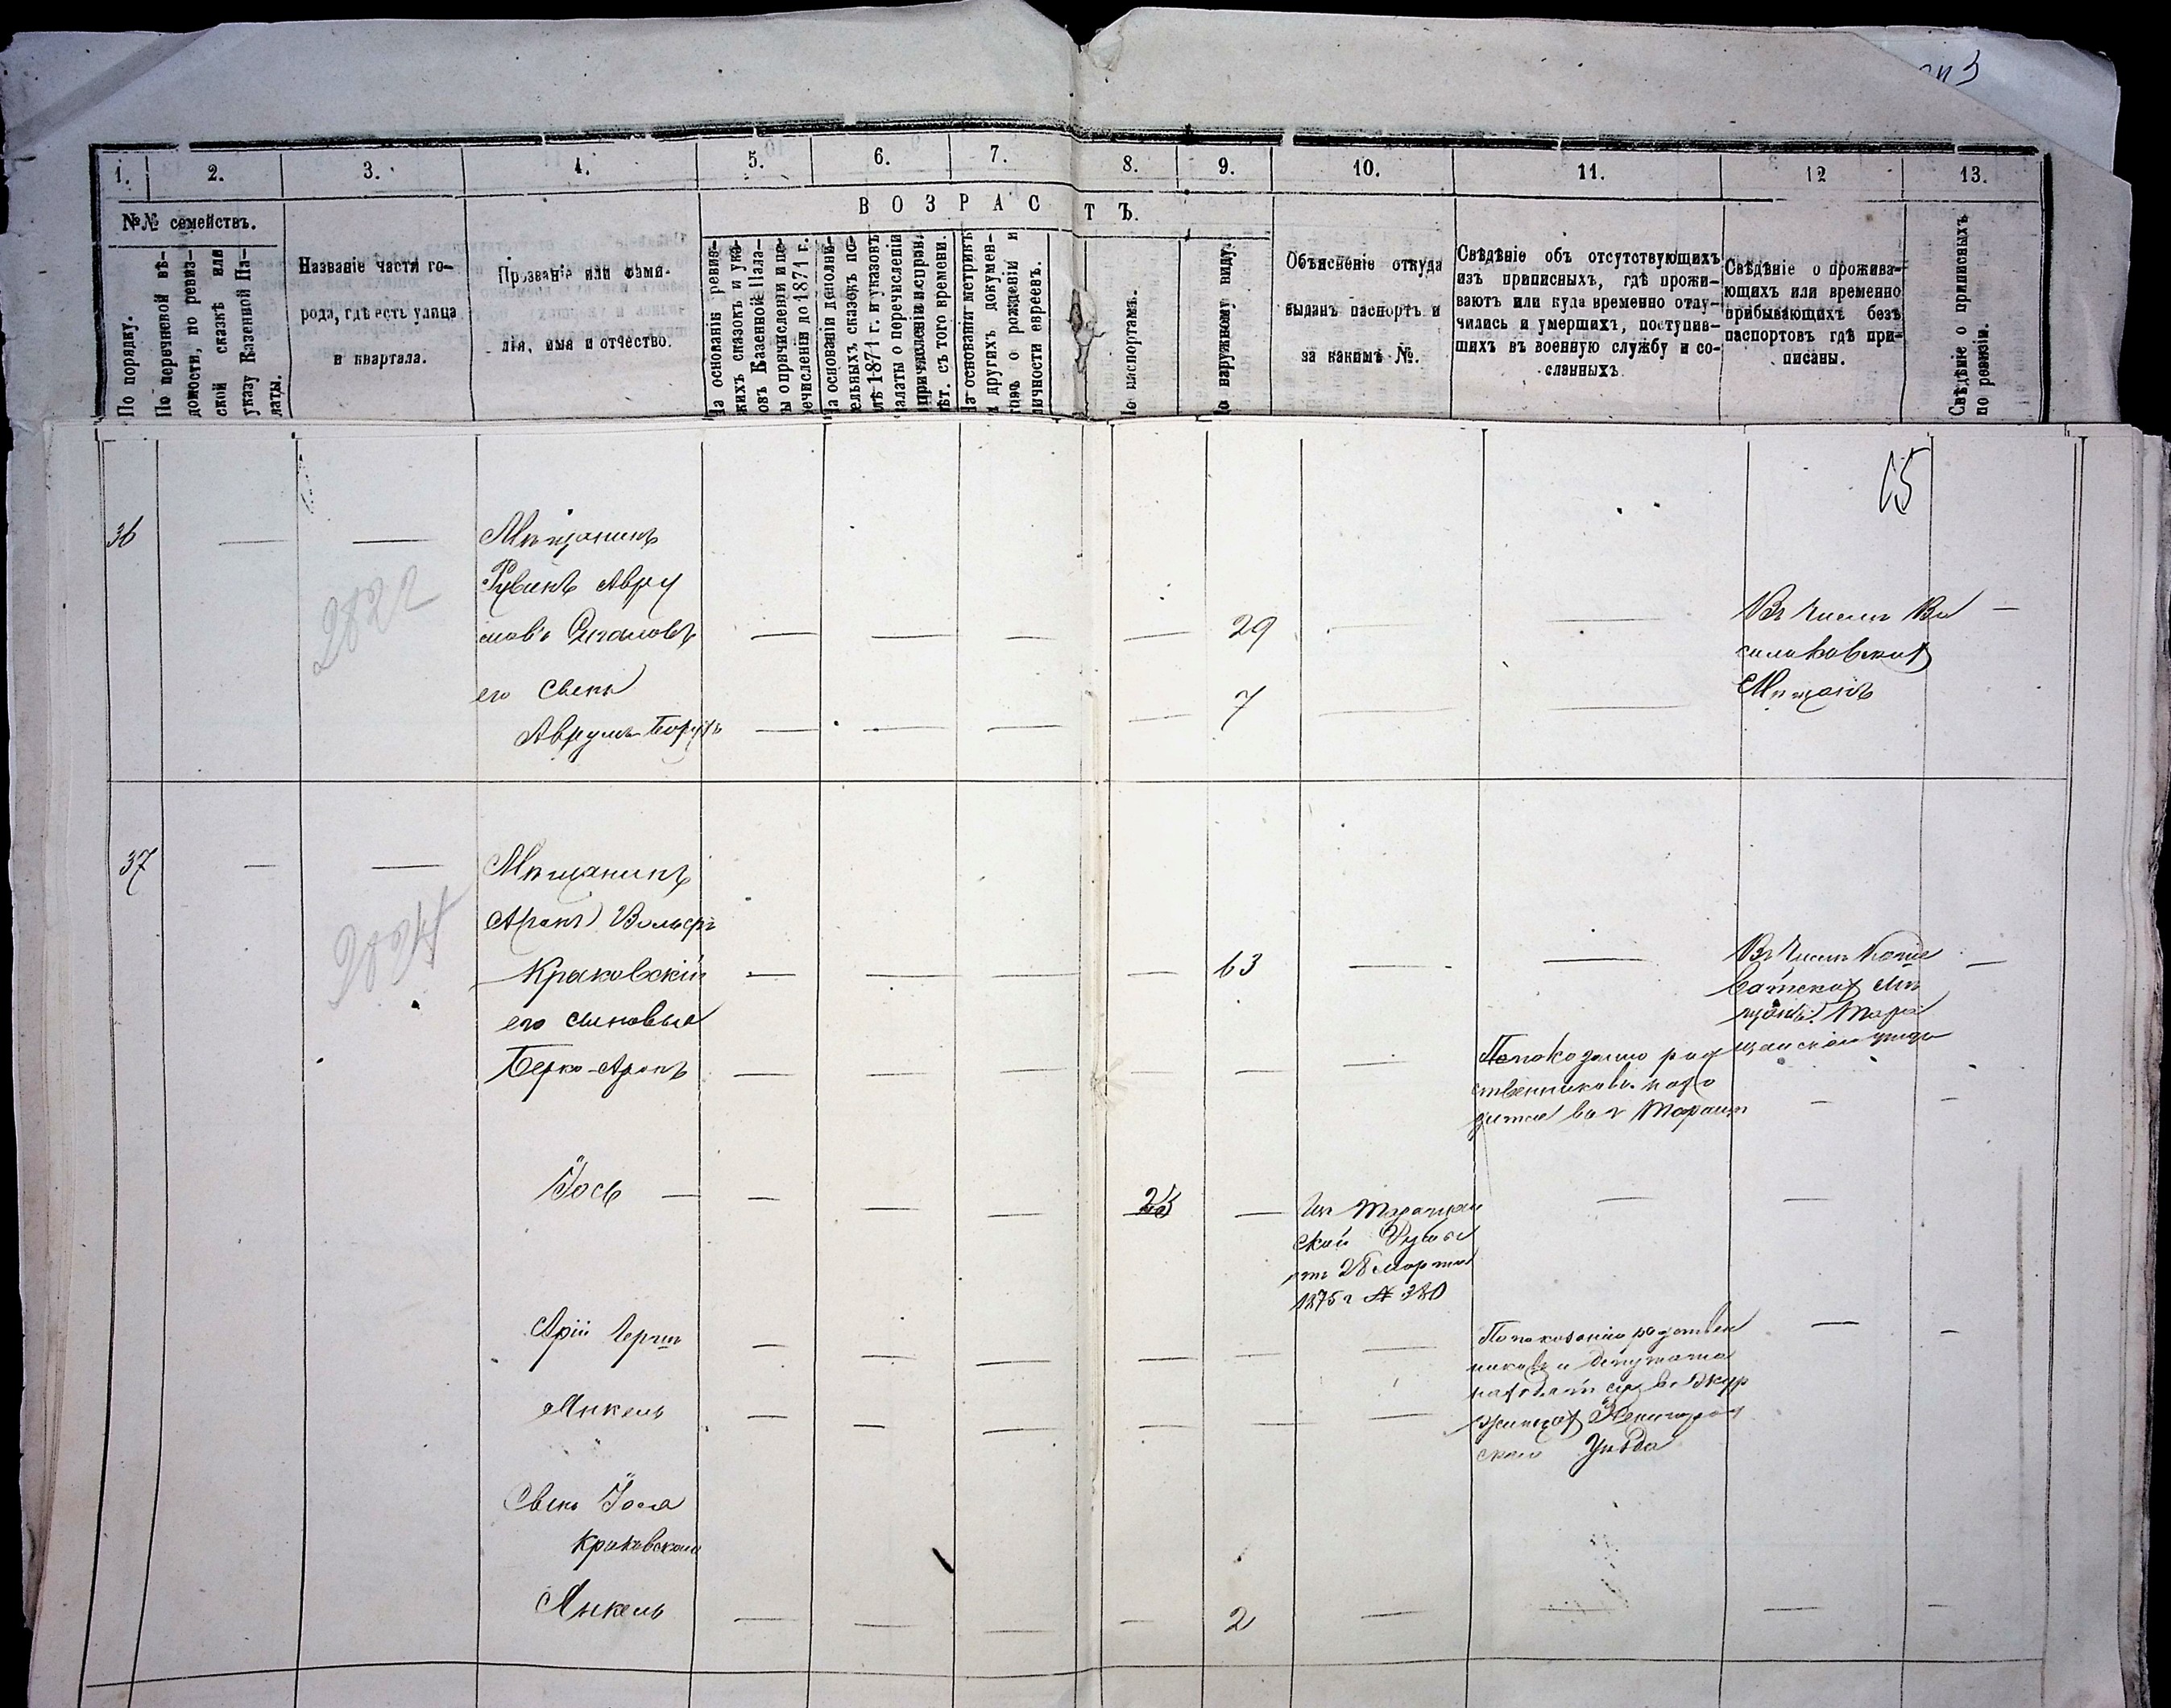 1. 2. 3. 4. 5. 6. 7. 8. 9. 10. 11. 12 13.
№№ семействъ.
ВОЗРАСТЪ.
По порядку.
По перечневой вѣ-
домости, по ревиз-
ской сказкѣ или
указу Казенной Па-
латы.
Названіе части го-
рода, гдѣ есть улица
и квартала.
Прозваніе или фами-
лія, имя и отчество.
На основаніи ревиз-
скихъ сказокъ и ука-
зовъ Казенной Пала-
ты о причисленіи и пе-
речисленіи до 1871 г.
На основаніи дополни-
тельныхъ сказокъ по-
слѣ 1871 г. и указовъ
палаты о перечисленіи
лѣт. съ того времени.
На основаніи метрикъ
и другихъ докумен-
товъ о рожденіи и
личности евреевъ.
По паспортамъ.
По наружному виду.
Объясненіе откуда
выданъ паспортъ и
за какимъ №.
Свѣдѣніе объ отсутствующихъ
изъ приписныхъ, гдѣ прожи-
ваютъ или куда временно отлу-
чились и умершихъ, поступив-
шихъ въ военную службу и со-
сланныхъ
Свѣдѣніе о прожива-
ющихъ или временно
прибывающихъ безъ
паспортовъ гдѣ при-
писаны.
Свѣдѣніе о приписныхъ
по ревизіи.
65
36
2822
Мѣщанинъ
Рувинъ Авру
мовъ
его сынъ
Аврумъ Борухъ
29
7
Въ числѣ Ва
сильковскихъ
Мѣщанъ
37
Мѣщанинъ
Аронъ Вольфъ
Краковскій
его сыновья
Берко-Аронъ
63
Въ числѣ
Мѣ
щанъ Тара
щанскаго уѣзда
По показанію род
ственниковъ нахо
дится въ г Таращѣ
Іось
Изъ Таращан
ской Думы
отъ 28 марта
1875 г № 380
Арій Герш
Янкель
По показанію родствен
никовъ и депутата
находятся въ Шкур
Звенигород
скаго Уѣзда
Сынъ Іося
Краковскаго
Янкель
2